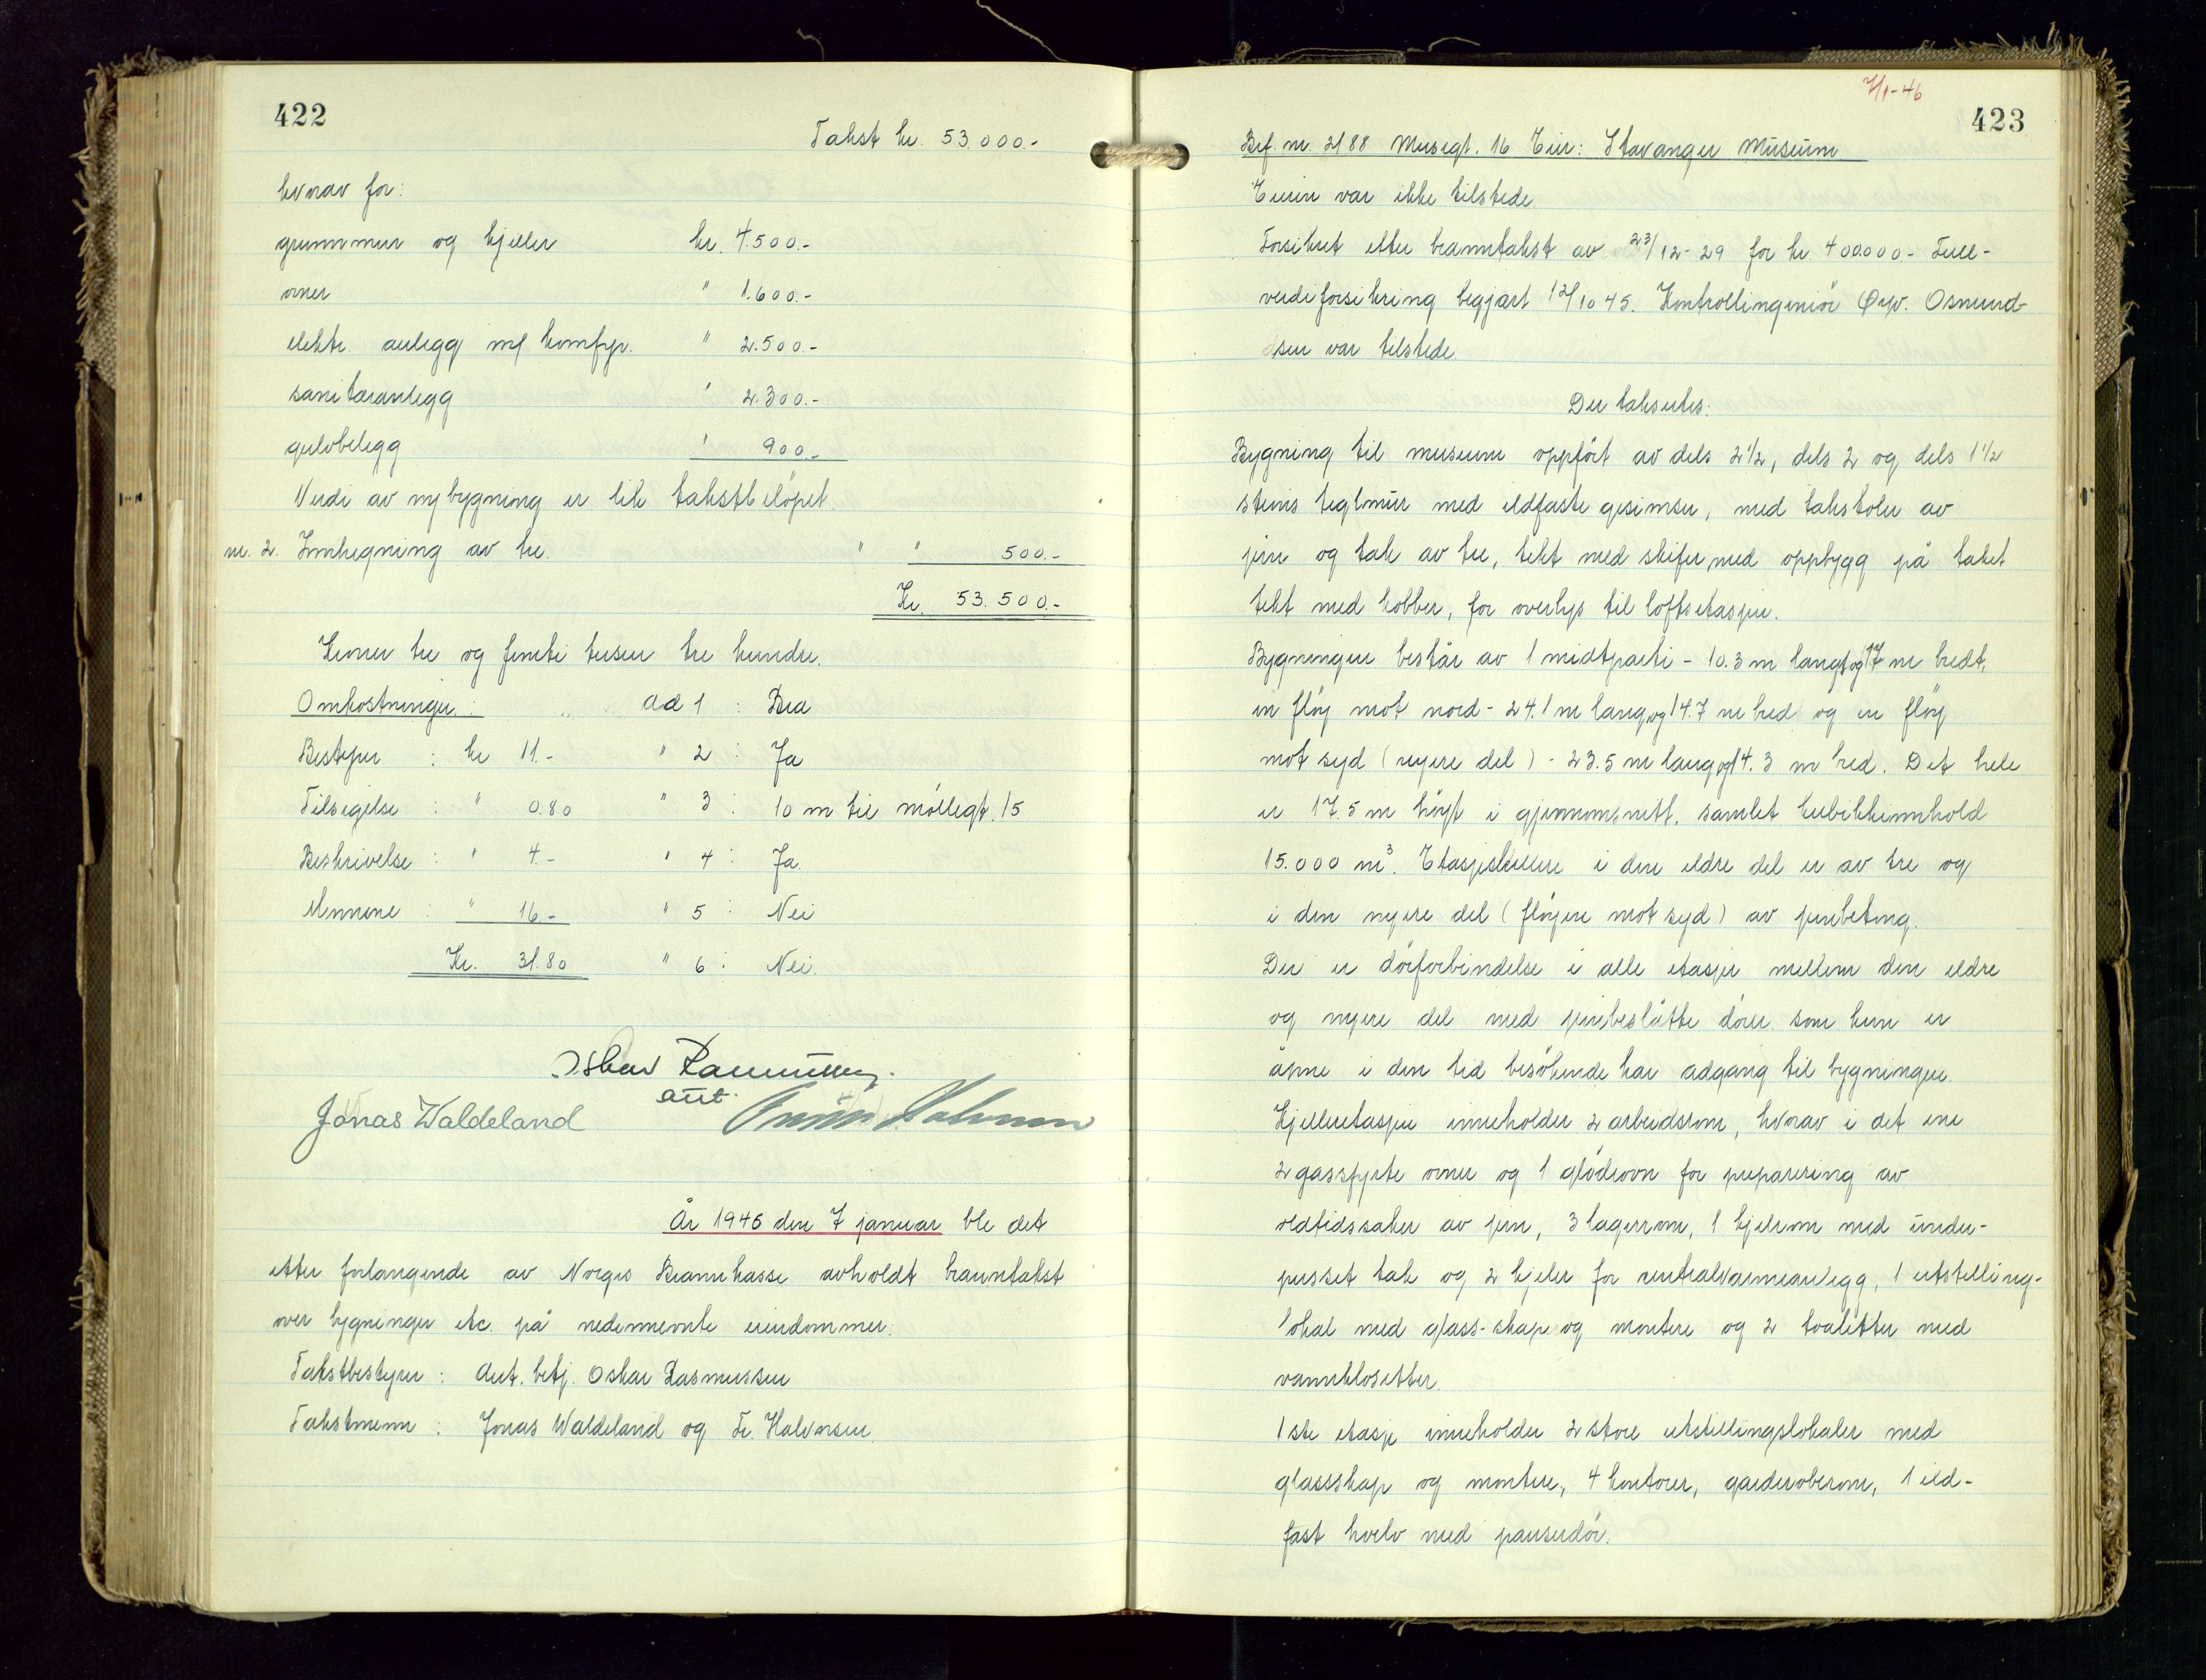 422
Takst kr. 53.000.-
hvorav for:
grunnmur og kjeller kr. 4.500.-
ovner " 1.600.-
elektr. anlegg m/ komfyr. " 2.500.-
sanitæranlegg " 2.300.-
gulvbelegg " 900.-
Verdi av nybygning er lik takstbeløpet.
nr. 2. Innhegning av tre. " " 500.-
Kr. 53.500.-
Kroner tre og femti tusen tre hundre.
Omkostninger: ad 1 : Bra
Bestyrer : kr 11.- " 2 : Ja
Tilsigelse : " 0.80 " 3 : 10 m til møllegt. 15
Beskrivelse : " 4.- " 4 : Ja.
Mennene : " 16.- " 5 : Nei
Kr. 31.80 " 6 : Nei.
Oskar Rasmussen.
aut.
Jonas Waldeland Halvorsen
År 1946 den 7 januar ble det
etter forlangende av Norges Brannkasse avholdt branntakst
over bygninger etc. på nedennevnte eiendommer.
Takstbestyrer : Aut. betj. Oskar Rasmussen
Takstmenn : Jonas Waldeland og Fr. Halvorsen.
7/1-46
423
Brf. nr. 2188 Musegt. 16 Eier: Stavanger Museum
Eieren var ikke tilstede.
Forsikret etter branntakst av 23/12-29 for kr. 400.000.- Full-
verdiforsikring begjært 12/10 45. Kontrollingeniør Ørp. Osmund-
sen var tilstede.
Der takseres:
Bygning til museum oppført av dels 2 1/2, dels 2 og dels 1 1/2
steins teglmur med ildfaste gesimser, med takstoler av
jern og tak av tre, tekt med skifer med oppbygg på taket
tekt med kobber, for overlys til loftsetasjen.
Bygningen består av 1 midtparti - 10.3 m langt og 17 m bredt,
en fløy mot nord - 24.1 m lang og 14.7 m bred og en fløy
mot syd (nyere del) - 23.5 m lang og 14.3 m bred. Det hele
er 17.5 m høyt i gjennomsnitt, samlet kubikkinnhold
15.000 m³. Etasjeskillere i den eldre del er av tre og
i den nyere del (fløyen mot syd) av jernbetong.
Der er dørforbindelse i alle etasjer mellem den eldre
og nyere del med jernbeslåtte dører som kun er
åpne i den tid besøkende har adgang til bygningen.
Kjelleretasjen inneholder 2 arbeidsrom, hvorav i det ene
2 gassfyrte ovner og 1 glødeovn for preparering av
oldtidssaker av jern, 3 lagerrom, 1 kjelrom med under-
pusset tak og 2 kjeler for centralvarmeanlegg, 1 utstilling-
lokal med glass-skap og montere og 2 toaletter med
vannklosetter.
1ste etasje inneholder 2 store utstillingslokaler med
glassskap og montere, 4 kontorer, garderoberom, 1 ild-
fast hvelv med panserdør.